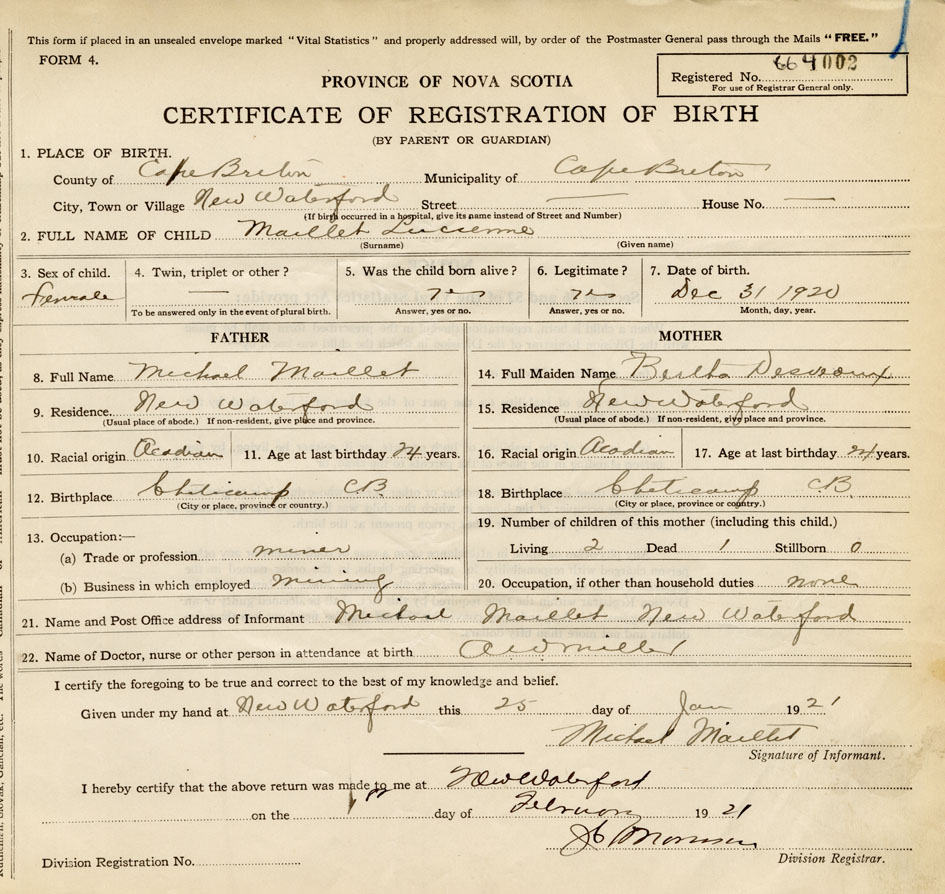 This form if placed in an unsealed envelope marked "Vital Statistics" and properly addressed will, by order of the Postmaster General pass through the Mails "FREE."
FORM 4.
Registered No. 664002
For use of Registrar General only.
PROVINCE OF NOVA SCOTIA
CERTIFICATE OF REGISTRATION OF BIRTH
(BY PARENT OR GUARDIAN)
1. PLACE OF BIRTH.
County of Cape Breton Municipality of Cape Breton
City, Town or Village New Waterford Street — House No. —
(If birth occurred in a hospital, give its name instead of Street and Number)
2. FULL NAME OF CHILD Maillet Lucienne
(Surname) (Given name)
3. Sex of child. 4. Twin, triplet or other? 5. Was the child born alive? 6. Legitimate? 7. Date of birth.
Female — yes yes Dec 31 1920
To be answered only in the event of plural birth. Answer, yes or no. Answer, yes or no. Month, day, year.
FATHER
8. Full Name Michael Maillet
9. Residence. New Waterford
(Usual place of abode.) If non-resident, give place and province.
10. Racial origin Acadian 11. Age at last birthday 24 years.
12. Birthplace Cheticamp C.B.
(City or place, province or country.)
13. Occupation:—
(a) Trade or profession miner
(b) Business in which employed mining
MOTHER
14. Full Maiden Name Bertha Desveaux
15. Residence New Waterford
(Usual place of abode.) If non-resident, give place and province.
16. Racial origin Acadian 17. Age at last birthday 24 years.
18. Birthplace Cheticamp C.B.
(City or place, province or country.)
19. Number of children of this mother (including this child.)
Living 2 Dead 1 Stillborn 0
20. Occupation, if other than household duties none
21. Name and Post Office address of Informant Michael Maillet New Waterford
22. Name of Doctor, nurse or other person in attendance at birth Miller
I certify the foregoing to be true and correct to the best of my knowledge and belief.
Given under my hand at New Waterford this 25 day of Jan 1921
Michael Maillet
Signature of Informant.
I hereby certify that the above return was made to me at New Waterford
on the 1st day of February 1921
Division Registration No. Division Registrar.